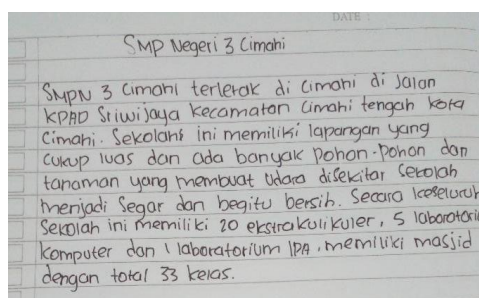 DATE :
SMP Negeri 3 Cimahi
SMPN 3 Cimahi terletak di Cimahi di Jalan
KPAD Sriwijaya Kecamatan Cimahi tengah kota
Cimahi. Sekolahs ini memiliki lapangan yang
cukup luas dan ada banyak pohon-pohon dan
tanaman yang membuat udara disekitar sekolah
menjadi segar dan begitu bersih. Secara keseluruh
sekolah ini memiliki 20 ekstrakulikuler, 5 laboratori
komputer dan 1 laboratorium IPA, memiliki masjid
dengan total 33 kelas.